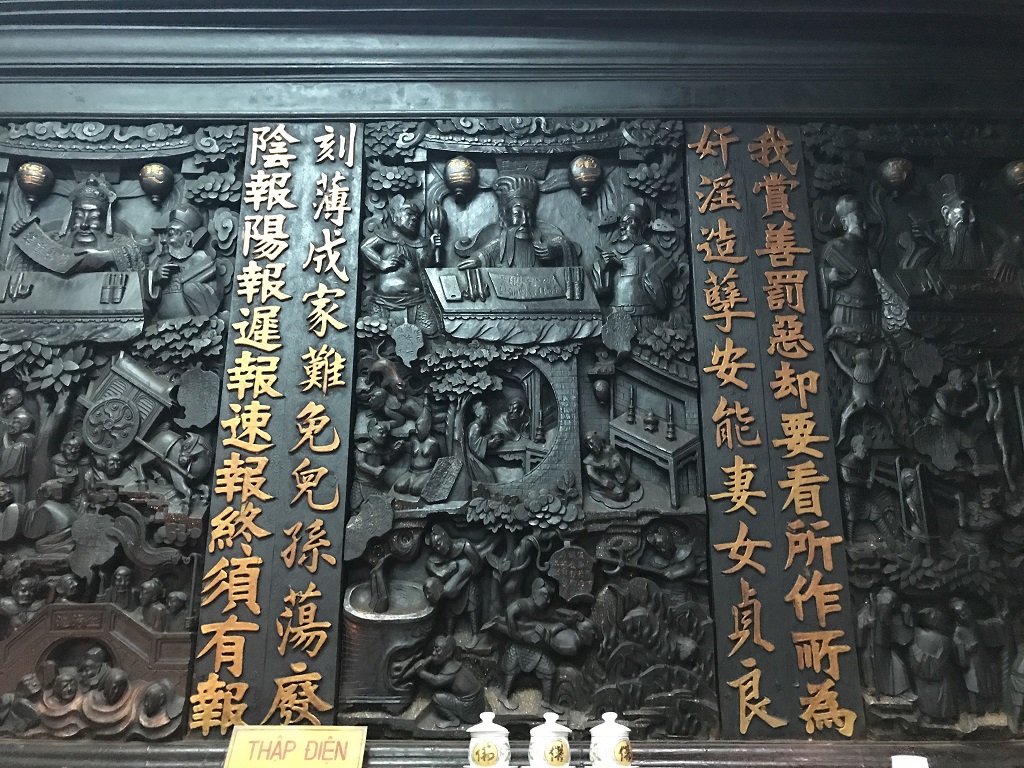 我賞善罰惡却要看所作所為
奸淫造孽安能妻女貞良
刻薄成家難免兒孫蕩廢
陰報陽報遲報速報終須有報
THẬP ĐIỆN
佛
佛
佛